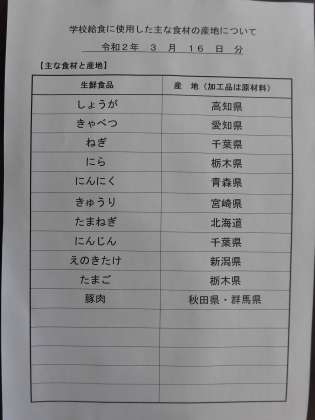 学校給食に使用した主な食材の産地について
令和2年 3 月 16 日 分
【主な食材と産地】
生鮮食品 産 地（加工品は原材料）
しょうが 高知県
きゃべつ 愛知県
ねぎ 千葉県
にら 栃木県
にんにく 青森県
きゅうり 宮崎県
たまねぎ 北海道
にんじん 千葉県
えのきたけ 新潟県
たまご 栃木県
豚肉 秋田県・群馬県